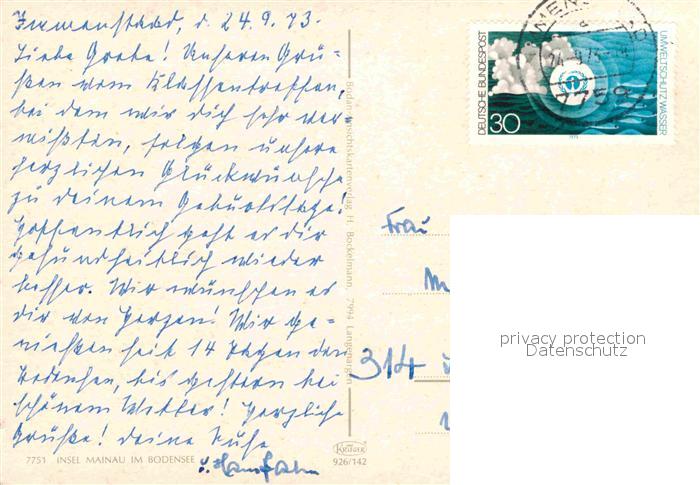 Immenstaad, d. 24.9.73.
Liebe Grete! Unseren Grü-
ßen vom Klassentreffen,
bei dem wir dich sehr ver-
mißten, folgen unsere
herzlichen Glückwünsche
zu deinem Geburtstage!
Hoffentlich geht es dir
gesundheitlich wieder
besser. Wir wünschen es
dir von Herzen! Wir ge-
nießen seit 14 Tagen den
Bodensee, bis gestern bei
schönem Wetter! Herzliche
Grüße! Deine
u.
7751 INSEL MAINAU IM BODENSEE
Bodan-Ansichtskartenverlag H. Bockelmann, 7994 Langenargen
KRÜGER
926/142
DEUTSCHE BUNDESPOST
30
UMWELTSCHUTZ WASSER
1973
7759
Frau
314
privacy protection
Datenschutz